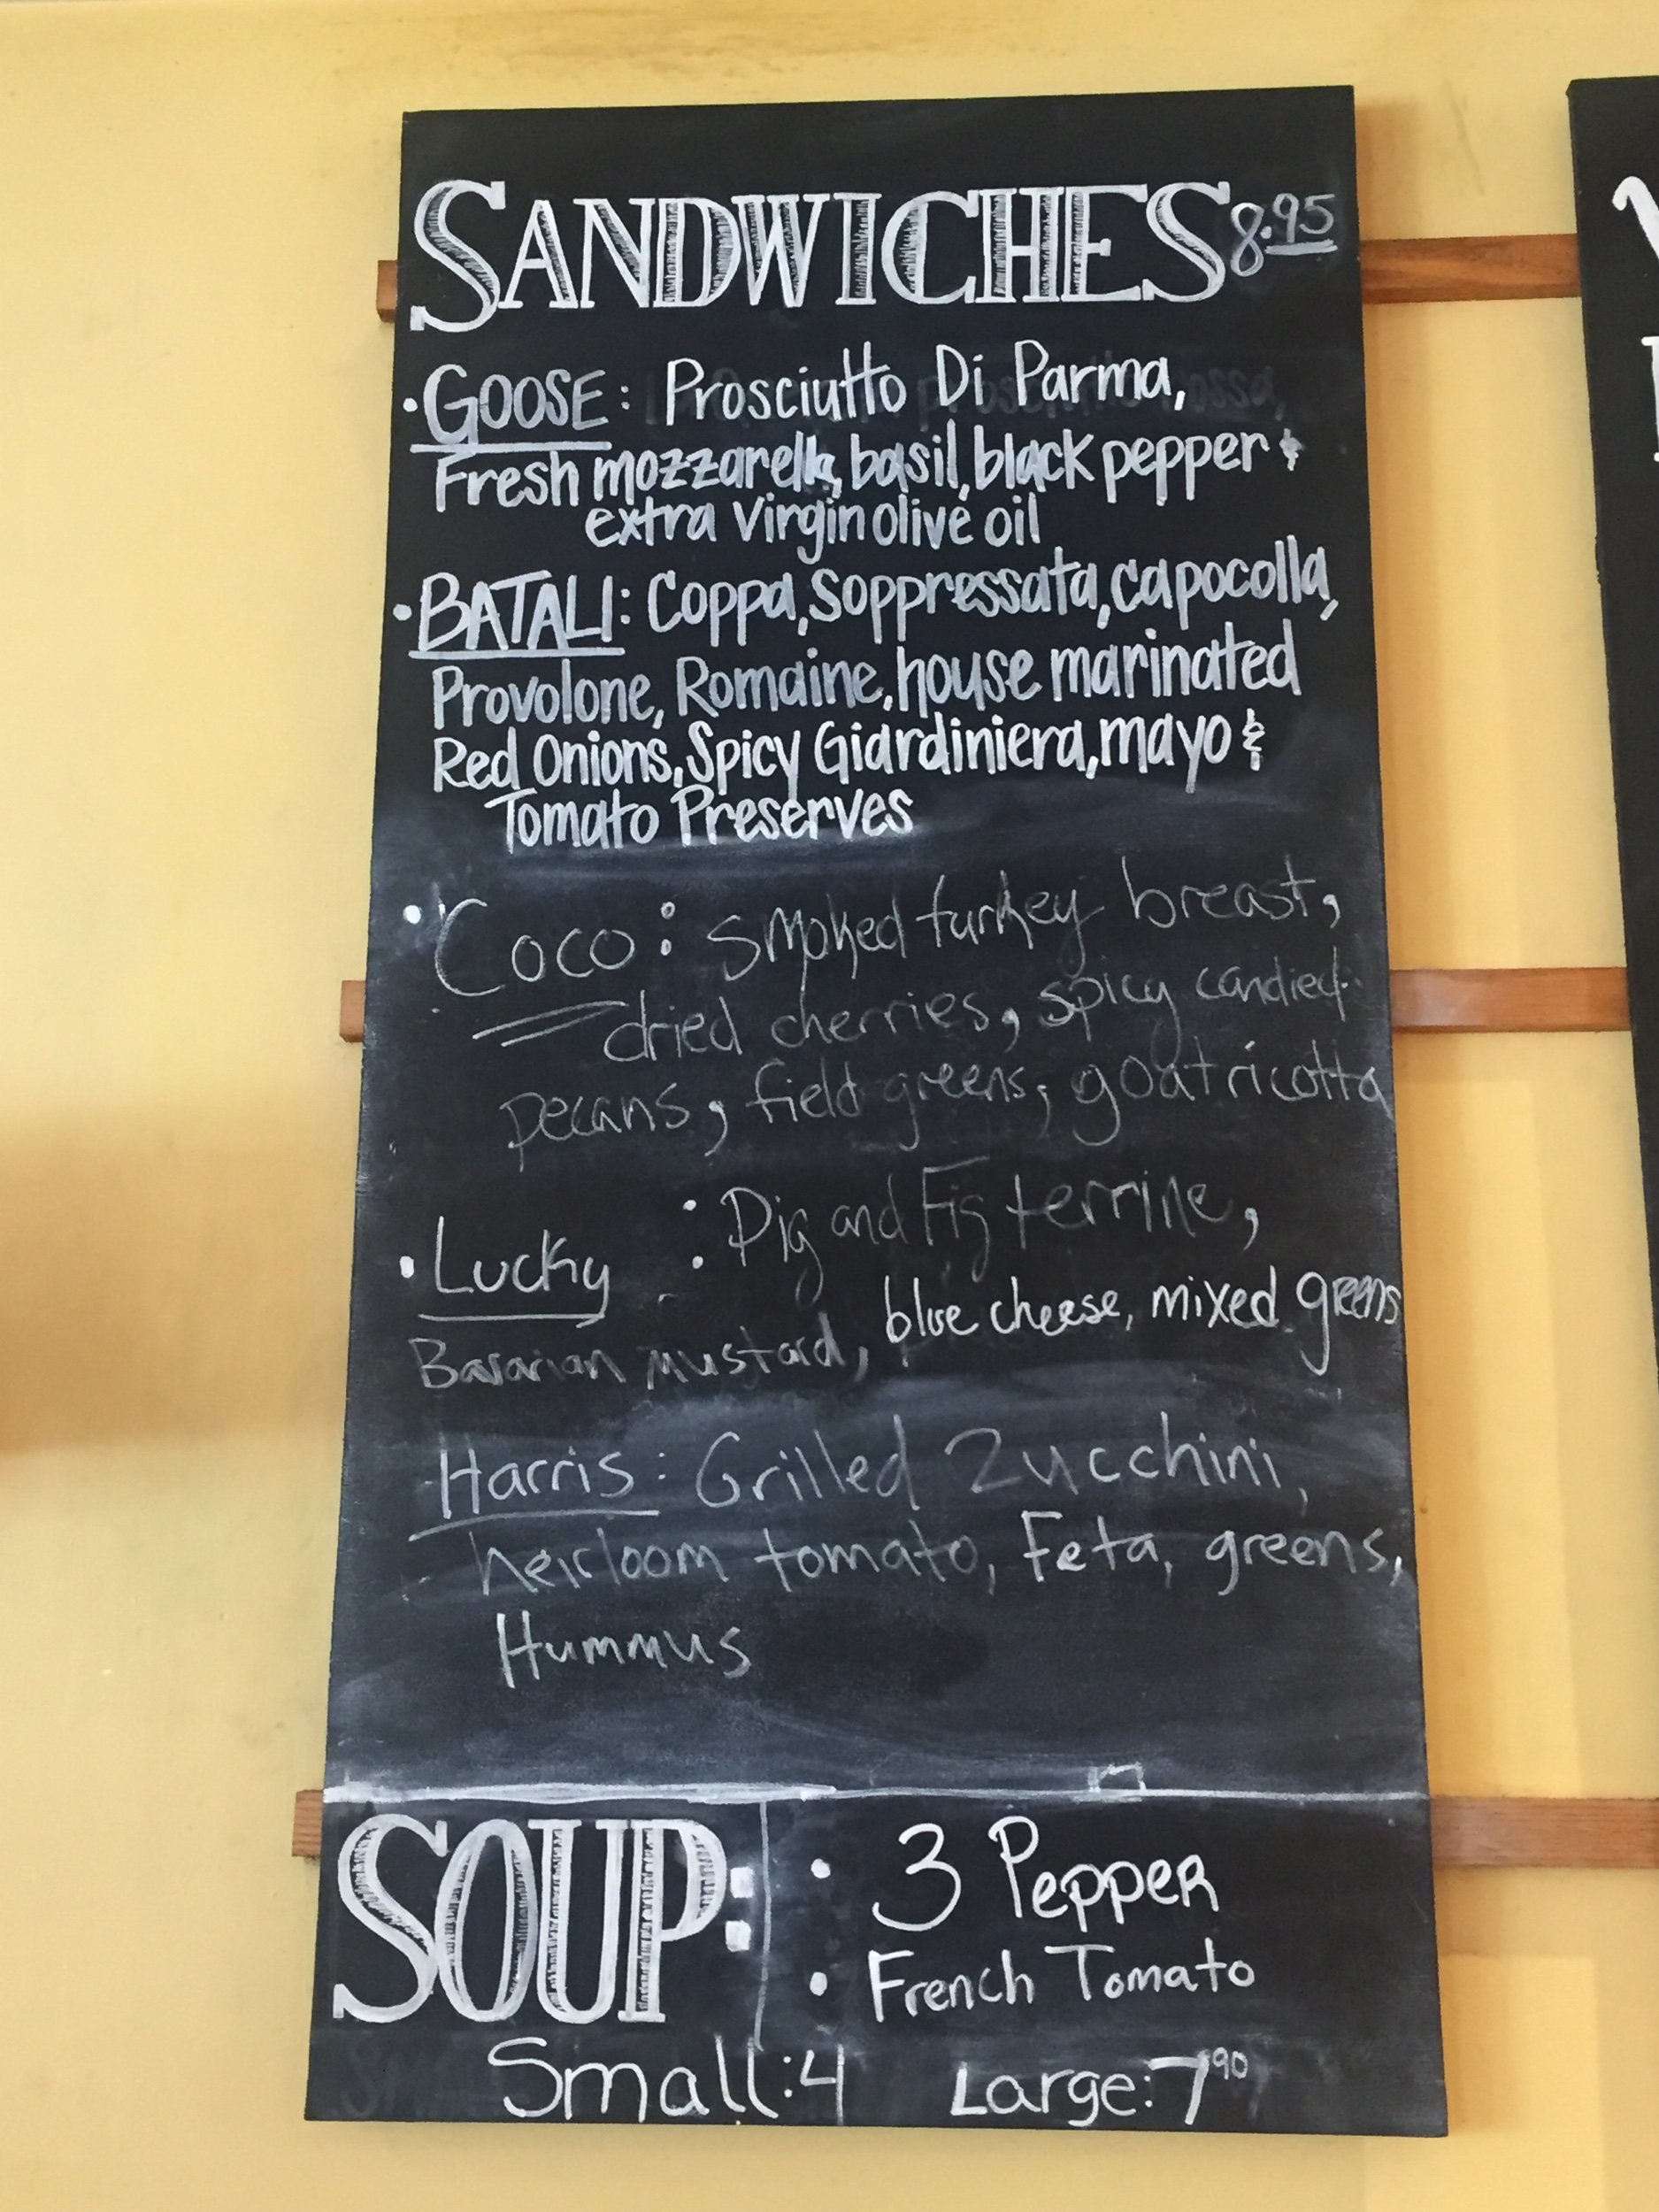 SANDWICHES 8.95
• GOOSE: Prosciutto Di Parma,
Fresh mozzarella, basil, black pepper &
extra Virgin olive oil
• BATALI: Coppa, Soppressata, capocolla,
Provolone, Romaine, house marinated
Red Onions, Spicy Giardiniera, mayo &
Tomato Preserves
• Coco: smoked turkey breast,
dried cherries, spicy candied
pecans, field greens, goat ricotta
• Lucky : Pig and Fig terrine,
Bavarian mustard, blue cheese, mixed greens
Harris: Grilled Zucchini,
heirloom tomato, Feta, greens,
Hummus
SOUP: • 3 Pepper
• French Tomato
Small: 4 Large: 7 90